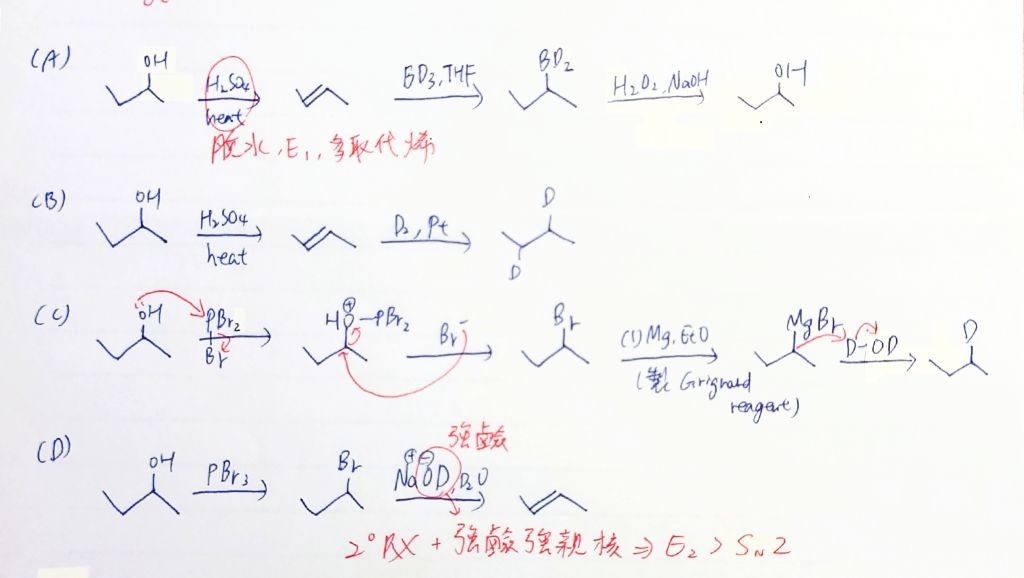 (A) OH H₂SO₄ heat BD₃, THF BD₂ H₂O₂, NaOH OH
脫水, E₁, 多取代烯
(B) OH H₂SO₄ heat D₂, Pt D D
(C) OH PBr₂ Br HO⊕-PBr₂ Br⁻ Br (1) Mg, EtO MgBr D-OD D
(製 Grignard reagent)
強鹼
(D) OH PBr₃ Br Na⊕ OD⊖, D₂O
2° RX + 強鹼強親核 ⇒ E₂ > SN2